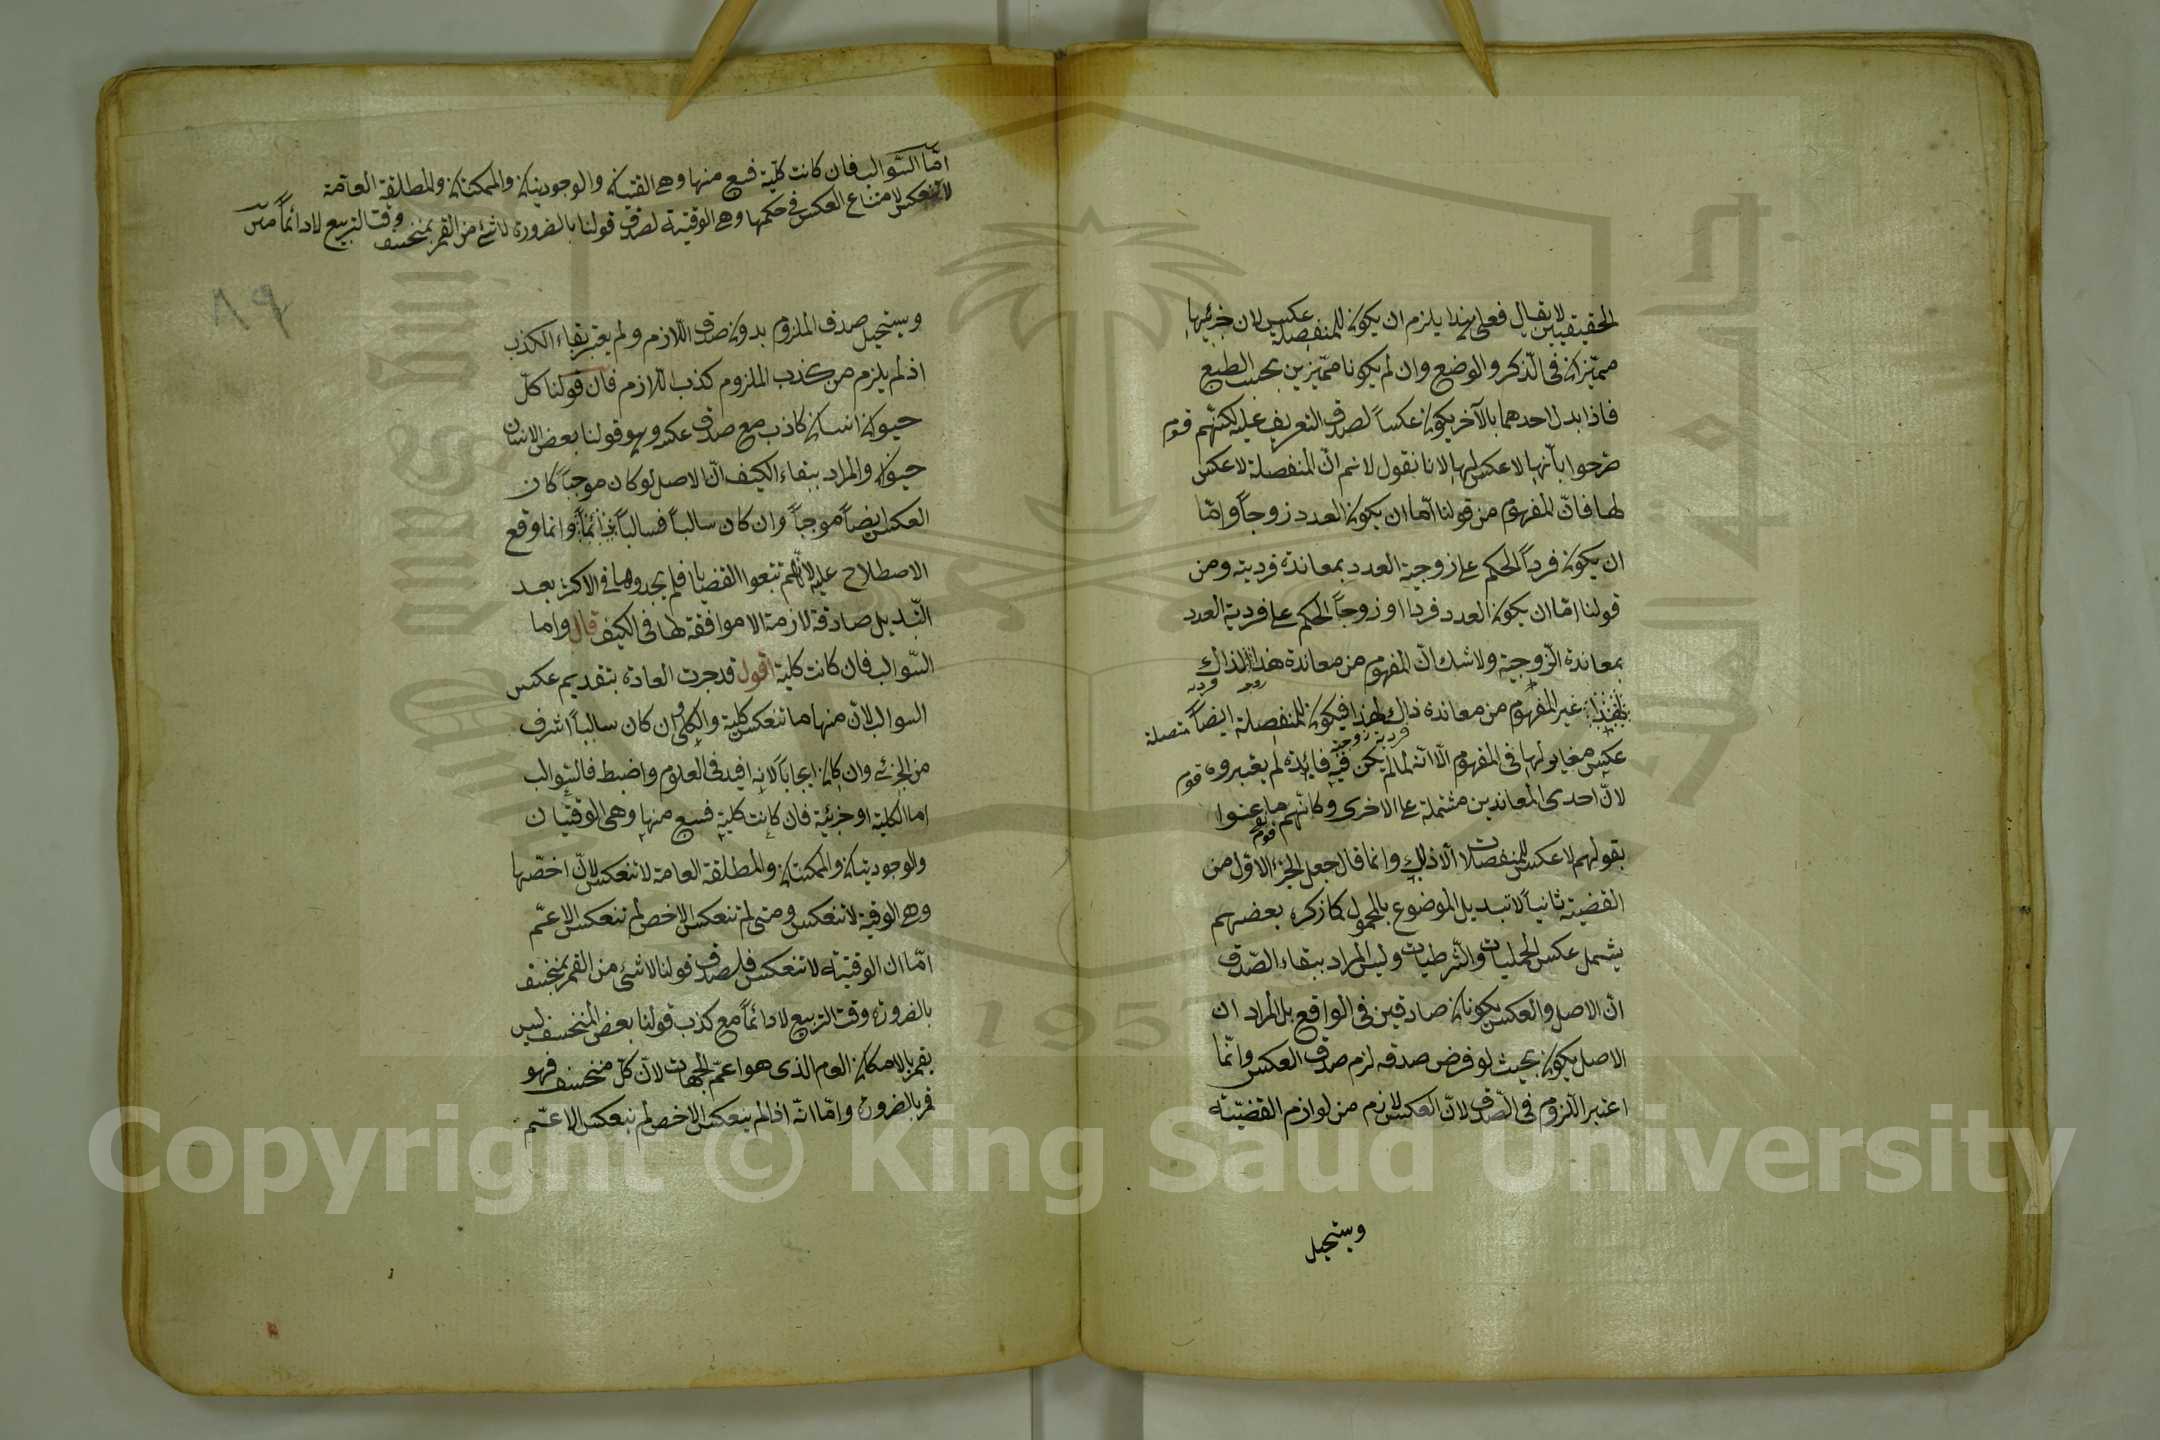 الحقيقيين لا يقال فعلى هذا يلزم ان يكون للمنفصلة عكس لان جزئيها
متميزان في الذكر والوضع وان لم يكونا متميزين بحسب الطبع
فاذا بدل احدهما بالآخر يكون عكساً لصدق التعريف عليه لكنهم قوم
صرحوا بأنها لا عكس لها لانا نقول لا نم ان المنفصلة لا عكس
لها فان المفهوم من قولنا اما ان يكون العدد زوجاً واما
ان يكون فرداً الحكم على زوجية العدد بمعاندة فرديته ومن
قولنا اما ان يكون العدد فردا او زوجاً الحكم على فردية العدد
بمعاندة الزوجية ولا شك ان المفهوم من معاندة هذا لذاك
غير المفهوم من معاندة ذاك لهذا فيكون للمنفصلة ايضاً متصلة
عكس مغاير لها في المفهوم الا انه لما لم يكن فيه فائدة لم يعتبروه قوم
لان احدى المعاندين مشتملة على الاخرى وكانهم ما عنوا
بقولهم لا عكس للمنفصلات الا ذلك وانما قال جعل الجزء الاول من
القضية ثانياً لا تبديل الموضوع بالمحمول كما ذكره بعضهم
يشمل عكس الحمليات والشرطيات وليس المراد ببقاء الصدق
ان الاصل والعكس يكونان صادقين في الواقع بل المراد ان
الاصل يكون بحيث لو فرض صدقه لزم صدق العكس وانما
اعتبر اللزوم في الصدق لان العكس لازم من لوازم القضية
ويستحيل
اما السوالب فان كانت كلية فسبع منها وهي الوقتيتان والوجوديتان والممكنتان والمطلقة العامة
لا تنعكس لامتناع العكس في حكمها وهي الوقتية لصدق قولنا بالضرورة لا شئ من القمر بمنخسف وقت التربيع لا دائماً
٨٩
ويستحيل صدق الملزوم بدون صدق اللازم ولم يعتبر بقاء الكذب
اذ لم يلزم من كذب الملزوم كذب اللازم فان قولنا كل
حيوان انسان كاذب مع صدق عكسه وهو قولنا بعض الانسان
حيوان والمراد ببقاء الكيف ان الاصل لو كان موجباً كان
العكس ايضاً موجباً وان كان سالباً فسالباً وانما وقع
الاصطلاح عليه لانهم تتبعوا القضايا فلم يجدوها في الاكثر بعد
التبديل صادقة لازمة الا موافقة لها في الكيف قال واما
السوالب فان كانت كلية اقول قد جرت العادة بتقديم عكس
السوالب لان منها ما تنعكس كلية والكلي وان كان سالباً اشرف
من الجزئي وان كان ايجاباً لانه افيد في العلوم واضبط فالسوالب
اما الكلية او جزئية فان كانت كلية فسبع منها وهي الوقتيان
والوجوديتان والممكنتان والمطلقة العامة لا تنعكس لان اخصها
وهي الوقتية لا تنعكس ومتى لم تنعكس الاخص لم تنعكس الاعم
اما ان الوقتية لا تنعكس فلصدق قولنا لا شئ من القمر بمنخسف
بالضرورة وقت التربيع لا دائماً مع كذب قولنا بعض المنخسف ليس
بقمر بالامكان العام الذى هو اعم الجهات لان كل منخسف فهو
قمر بالضرورة واما انه اذا لم ينعكس الاخص لم ينعكس الاعم
Copyright © King Saud University
1957